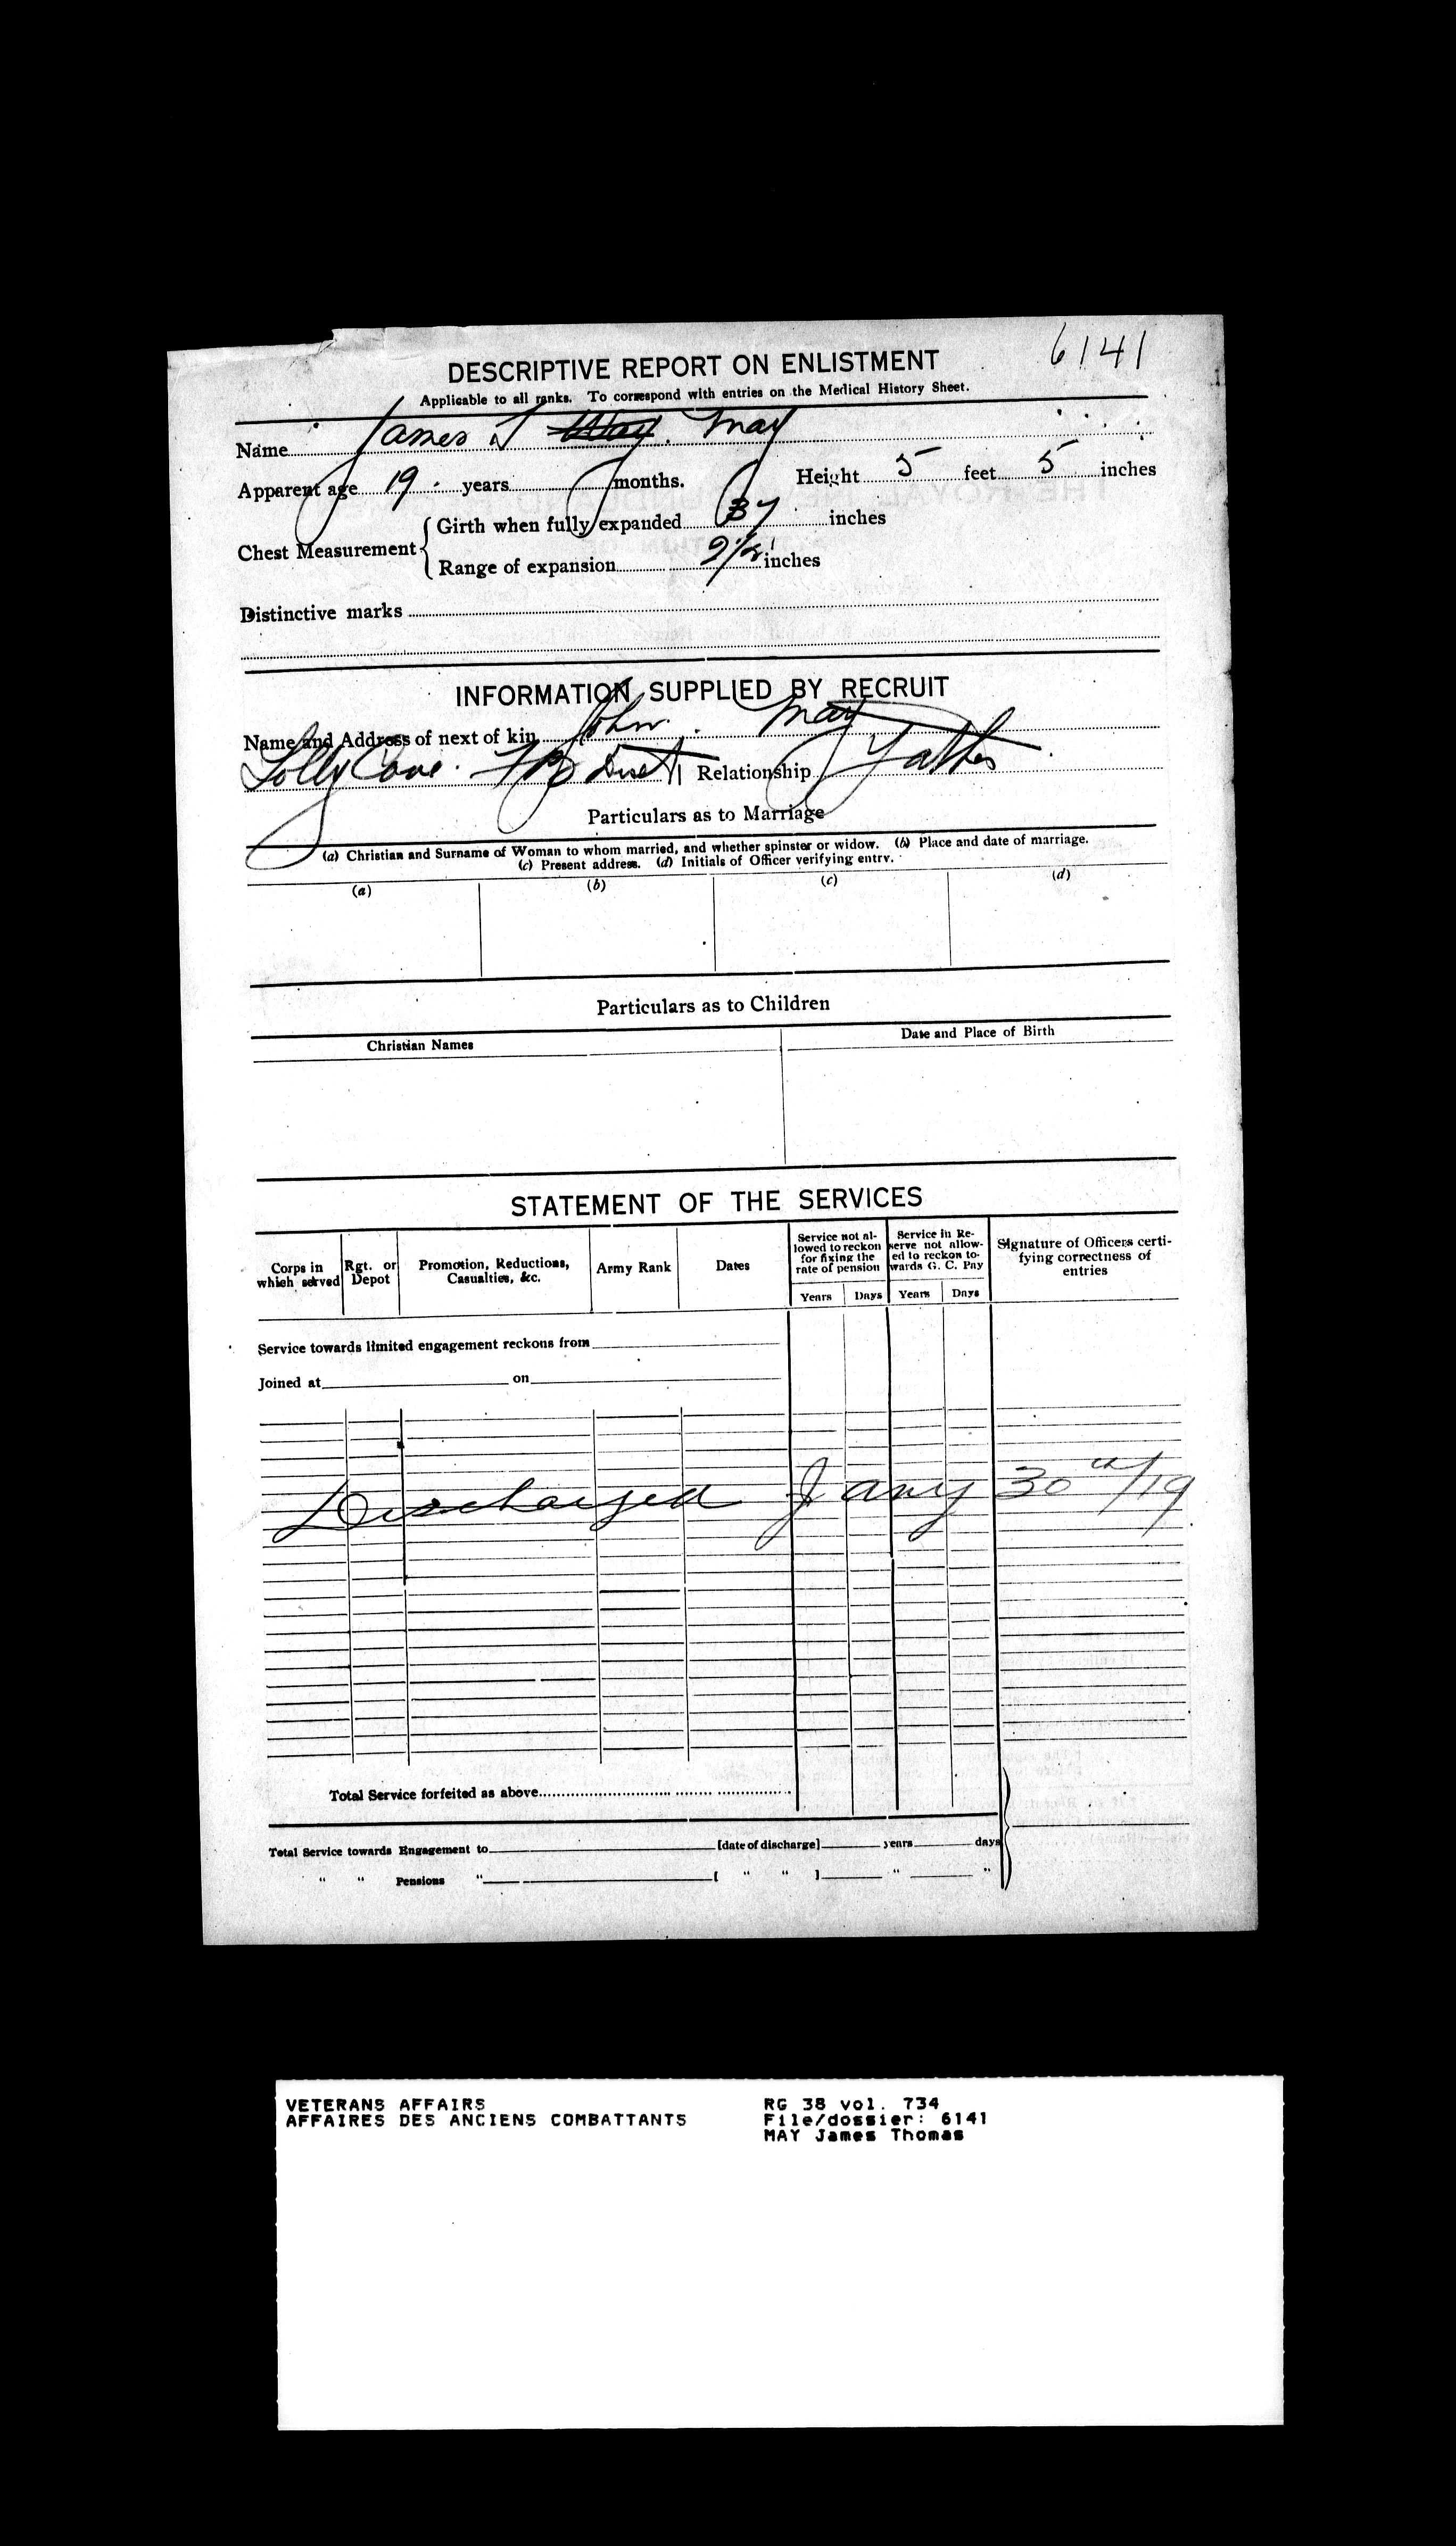 6141
DESCRIPTIVE REPORT ON ENLISTMENT
Applicable to all ranks. To correspond with entries on the Medical History Sheet.
Name James T May
Apparent age 19 years months. Height 5 feet 5 inches
Chest Measurement Girth when fully expanded 37 inches
Range of expansion 2 1/2 inches
Distinctive marks
INFORMATION SUPPLIED BY RECRUIT
Name and Address of next of kin John May
Lolly Cove. Dist Relationship Father
Particulars as to Marriage
(a) Christian and Surname of Woman to whom married, and whether spinster or widow. (b) Place and date of marriage.
(c) Present address. (d) Initials of Officer verifying entry.
(a) (b) (c) (d)
Particulars as to Children
Christian Names Date and Place of Birth
STATEMENT OF THE SERVICES
Corps in which served Rgt. or Depot Promotion, Reductions, Casualties, &c. Army Rank Dates Service not allowed to reckon for fixing the rate of pension Service in Reserve not allowed to reckon towards G. C. Pay Signature of Officers certifying correctness of entries
Years Days Years Days
Service towards limited engagement reckons from
Joined at on
Discharged Jany 30th/19
Total Service forfeited as above
Total Service towards Engagement to [date of discharge] years days
" " Pensions " [ " " ] " "
VETERANS AFFAIRS RG 38 vol. 734
AFFAIRES DES ANCIENS COMBATTANTS File/dossier: 6141
MAY James Thomas